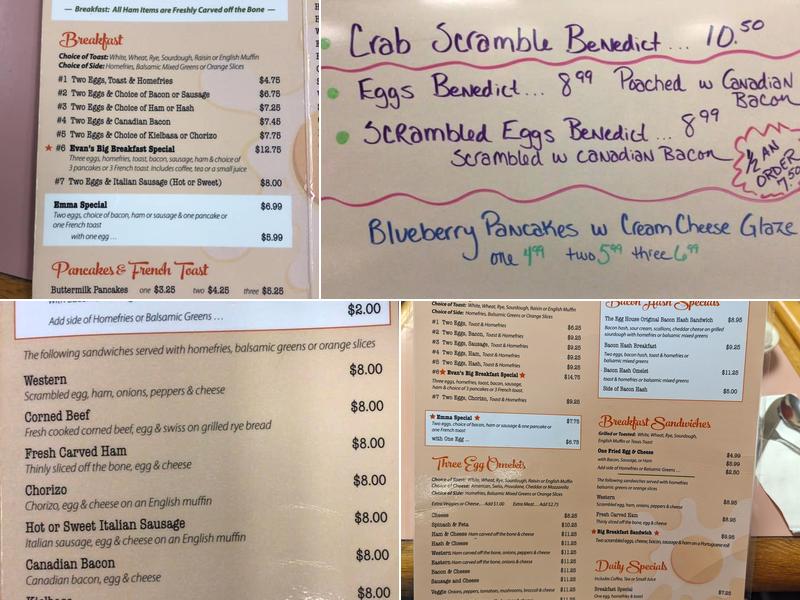 — Breakfast: All Ham Items are Freshly Carved off the Bone —
Breakfast
Choice of Toast: White, Wheat, Rye, Sourdough, Raisin or English Muffin
Choice of Side: Homefries, Balsamic Mixed Greens or Orange Slices
#1 Two Eggs, Toast & Homefries $4.75
#2 Two Eggs & Choice of Bacon or Sausage $6.75
#3 Two Eggs & Choice of Ham or Hash $7.25
#4 Two Eggs & Canadian Bacon $7.45
#5 Two Eggs & Choice of Kielbasa or Chorizo $7.75
★ #6 Evan's Big Breakfast Special $12.75
Three eggs, homefries, toast, bacon, sausage, ham & choice of
3 pancakes or 3 French toast. Includes coffee, tea or a small juice
#7 Two Eggs & Italian Sausage (Hot or Sweet) $8.00
Emma Special $6.99
Two eggs, choice of bacon, ham or sausage & one pancake or
one French toast
with one egg ... $5.99
Pancakes & French Toast
Buttermilk Pancakes one $3.25 two $4.25 three $5.25
Crab Scramble Benedict ... 10.50
Eggs Benedict ... 8.99 Poached w Canadian
Bacon
Scrambled Eggs Benedict ... 8.99
Scrambled w Canadian Bacon
1/2 an
order
7.50
Blueberry Pancakes w Cream Cheese Glaze
one 4.99 two 5.99 three 6.99
$2.00
Add side of Homefries or Balsamic Greens ...
The following sandwiches served with homefries, balsamic greens or orange slices
Western $8.00
Scrambled egg, ham, onions, peppers & cheese
Corned Beef $8.00
Fresh cooked corned beef, egg & swiss on grilled rye bread
Fresh Carved Ham $8.00
Thinly sliced off the bone, egg & cheese
Chorizo $8.00
Chorizo, egg & cheese on an English muffin
Hot or Sweet Italian Sausage $8.00
Italian sausage, egg & cheese on an English muffin
Canadian Bacon $8.00
Canadian bacon, egg & cheese
Kielbasa $8.00
Choice of Toast: White, Wheat, Rye, Sourdough, Raisin or English Muffin
Choice of Side: Homefries, Balsamic Mixed Greens or Orange Slices
#1 Two Eggs, Toast & Homefries $6.25
#2 Two Eggs, Bacon, Toast & Homefries $9.25
#3 Two Eggs, Sausage, Toast & Homefries $9.25
#4 Two Eggs, Ham, Toast & Homefries $9.25
#5 Two Eggs, Hash, Toast & Homefries $9.25
#6 ★ Evan's Big Breakfast Special ★ $14.75
Three eggs, homefries, toast, bacon, sausage,
ham & choice of 3 pancakes or 3 French toast.
#7 Two Eggs, Chorizo, Toast & Homefries $9.25
Emma Special ★ $7.75
Two eggs, choice of bacon, ham or sausage & one pancake or
one French toast
with One Egg ... $6.75
Three Egg Omelets
Choice of Toast: White, Wheat, Rye, Sourdough, Raisin or English Muffin
Choice of Cheese: American, Swiss, Provolone, Cheddar or Mozzarella
Choice of Side: Homefries, Balsamic Mixed Greens or Orange Slices
Extra Veggies or Cheese... Add $1.00 Extra Meat... Add $2.75
Cheese $8.25
Spinach & Feta $10.25
Ham & Cheese Ham carved off the bone & cheese $11.25
Hash & Cheese $11.25
Western Ham carved off the bone, onions, peppers & cheese $11.25
Eastern Ham carved off the bone, onions & cheese $11.25
Bacon & Cheese $11.25
Sausage and Cheese $11.25
Veggie Onions, peppers, tomatoes, mushrooms, broccoli & cheese $11.25
Bacon Hash Specials
The Egg House Original Bacon Hash Sandwich $8.95
Bacon hash, sour cream, scallions, cheddar cheese on grilled
sourdough with homefries or balsamic mixed greens
Bacon Hash Breakfast $9.25
Two eggs, bacon hash, toast & homefries or
balsamic mixed greens
Bacon Hash Omelet $11.25
toast & homefries or balsamic mixed greens
Side of Bacon Hash $5.00
Breakfast Sandwiches
Grilled or Toasted: White, Wheat, Rye, Sourdough,
English Muffin or Texas Toast
One Fried Egg & Cheese $4.99
with Bacon, Sausage, or Ham $5.99
Add side of Homefries or Balsamic Greens $2.50
The following sandwiches served with homefries
balsamic greens or orange slices
Western $8.95
Scrambled egg, ham, onions, peppers & cheese
Fresh Carved Ham $8.95
Thinly sliced off the bone, egg & cheese
★ Big Breakfast Sandwich ★ $9.95
Two scrambled eggs, cheese, bacon, sausage & ham on a Portuguese roll
Daily Specials
Includes Coffee, Tea or Small Juice
Breakfast Special $7.25
One egg, homefries & toast